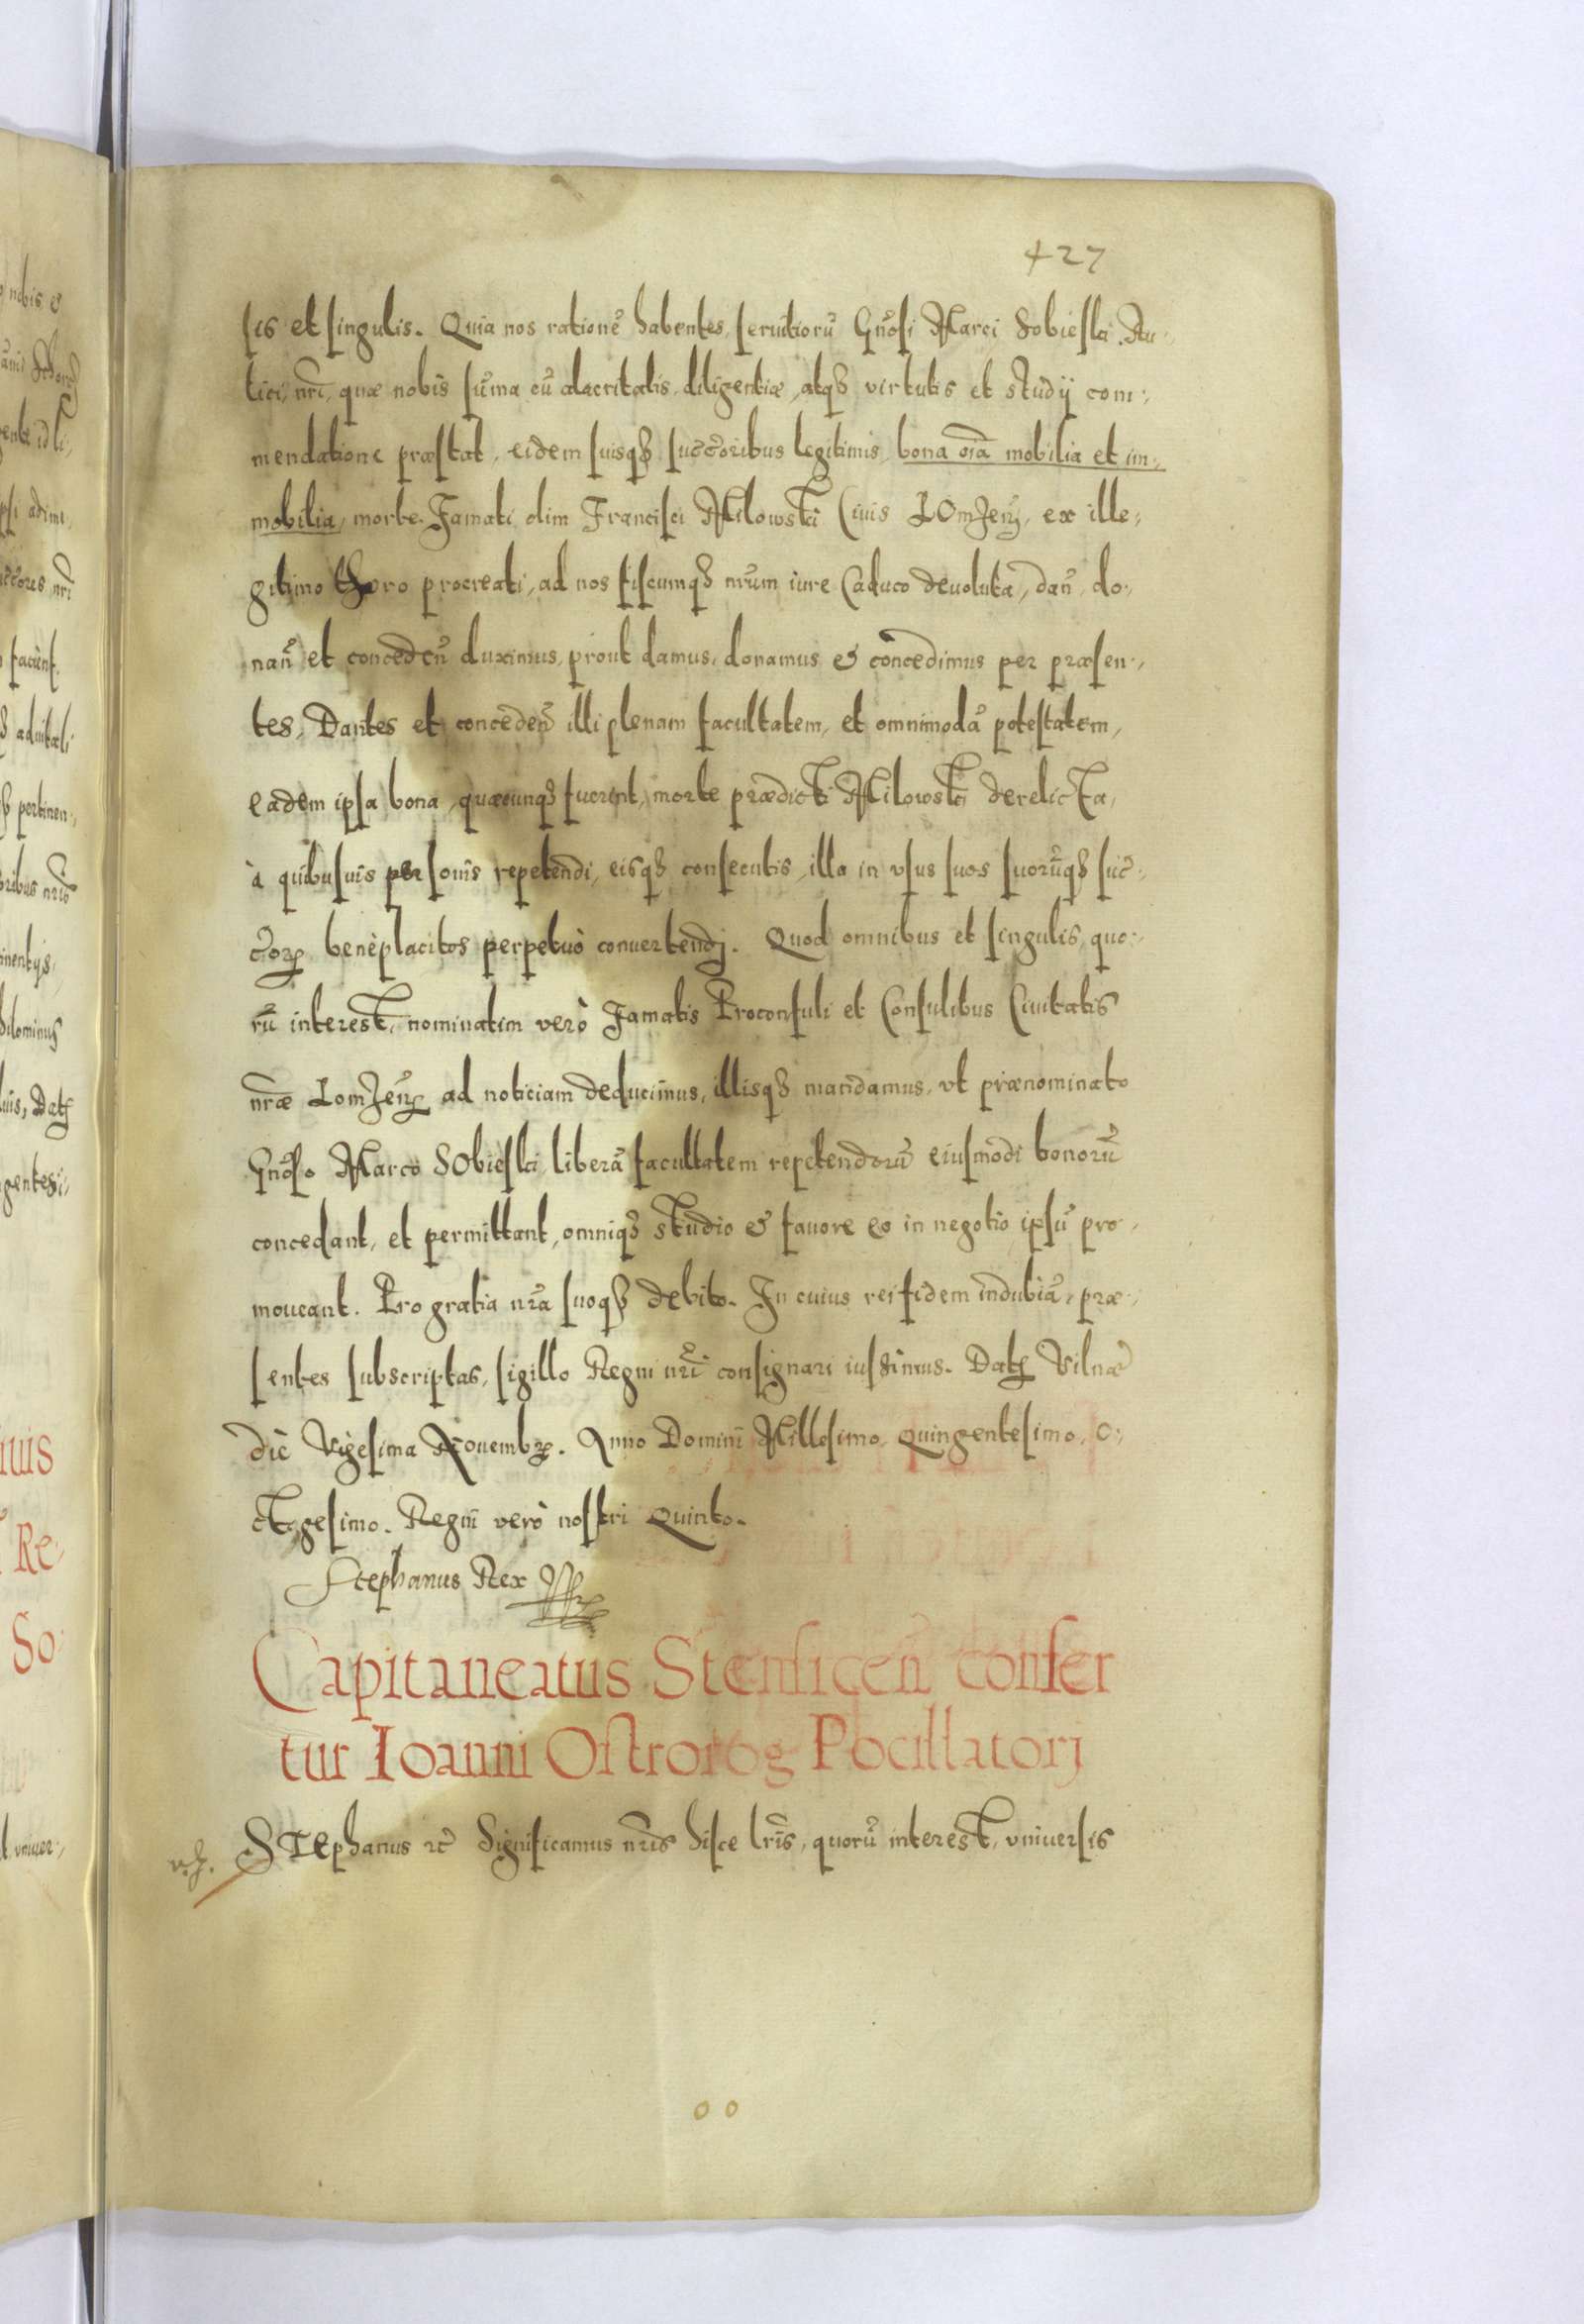 427
sis et singulis. Quia nos rationẽ habentes seruitiorũ Gnõsi Marci Sobieski Au-
lici nrĩ, quæ nobis sũma cũ alacritatis, diligentiæ, atqȝ virtutis et studij com-
mendatione præstat, eidem suisqȝ succẽoribus legitimis, bona oĩa mobilia et im-
mobilia, morte Famati olim Francisci Milowski Ciuis LOmZeñ, ex ille-
gitimo thoro procreati, ad nos fiscumqȝ nrũm iure Caduco deuoluta, dañ, do-
nañ et concedeñ duximus, prout damus, donamus & concedimus per præsen-
tes, Dantes et concedeñ illi plenam facultatem, et omnimodã potestatem,
eadem ipsa bona, quæcunqȝ fuerint, morte prædicti Milowski derelicta,
à quibusuis personis repetendi, eisqȝ consecutis, illa in vsus suos suorũqȝ suc̃-
c̃oꝝ benèplacitos perpetuò conuertendj. Quod omnibus et singulis, quo-
rũ interest, nominatim verò Famatis Proconsuli et Consulibus Ciuitatis
nrãe LomZeñ ad noticiam deducimus, illisqȝ mandamus, vt prænominato
Gnõso Marco SObieski, liberã facultatem repetendorũ eiusmodi bonorũ
concedant, et permittant, omniqȝ studio & fauore eo in negotio ipsũ pro-
moueant. Pro gratia nrã suoqȝ debito. In cuius rei fidem indubiã, præ-
sentes subscriptas, sigillo Regni nrĩ consignari iussimus. Datꝭ Vilnæ
die Vigesima Nouembꝝ. Anno Domini Millesimo, quingentesimo, o-
ctogesimo. Regni verò nostri Quinto.
Stephanus Rex
Capitaneatus Stensiceñ confer
tur Ioanni Ostrorog Pocillatorj
STEphanus ec̃ Significamus nrĩs hisce lrĩs, quorũ interest, vniuersis